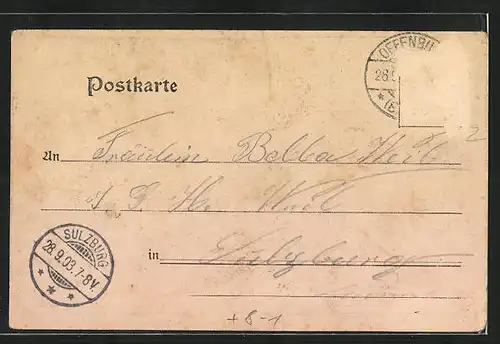 Postkarte
OFFENBU
26.9
An Fräulein Bella Weil
Weil
in Sulzburg
SULZBURG
28.9.03.7-8V.
2
+8-1